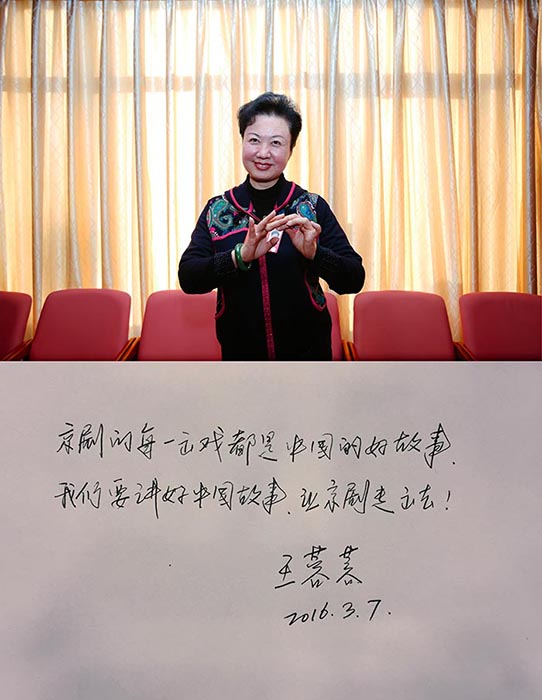 京剧的每一出戏都是中国的好故事、
我们要讲好中国故事、让京剧走出去！
王蓉蓉
2016.3.7.